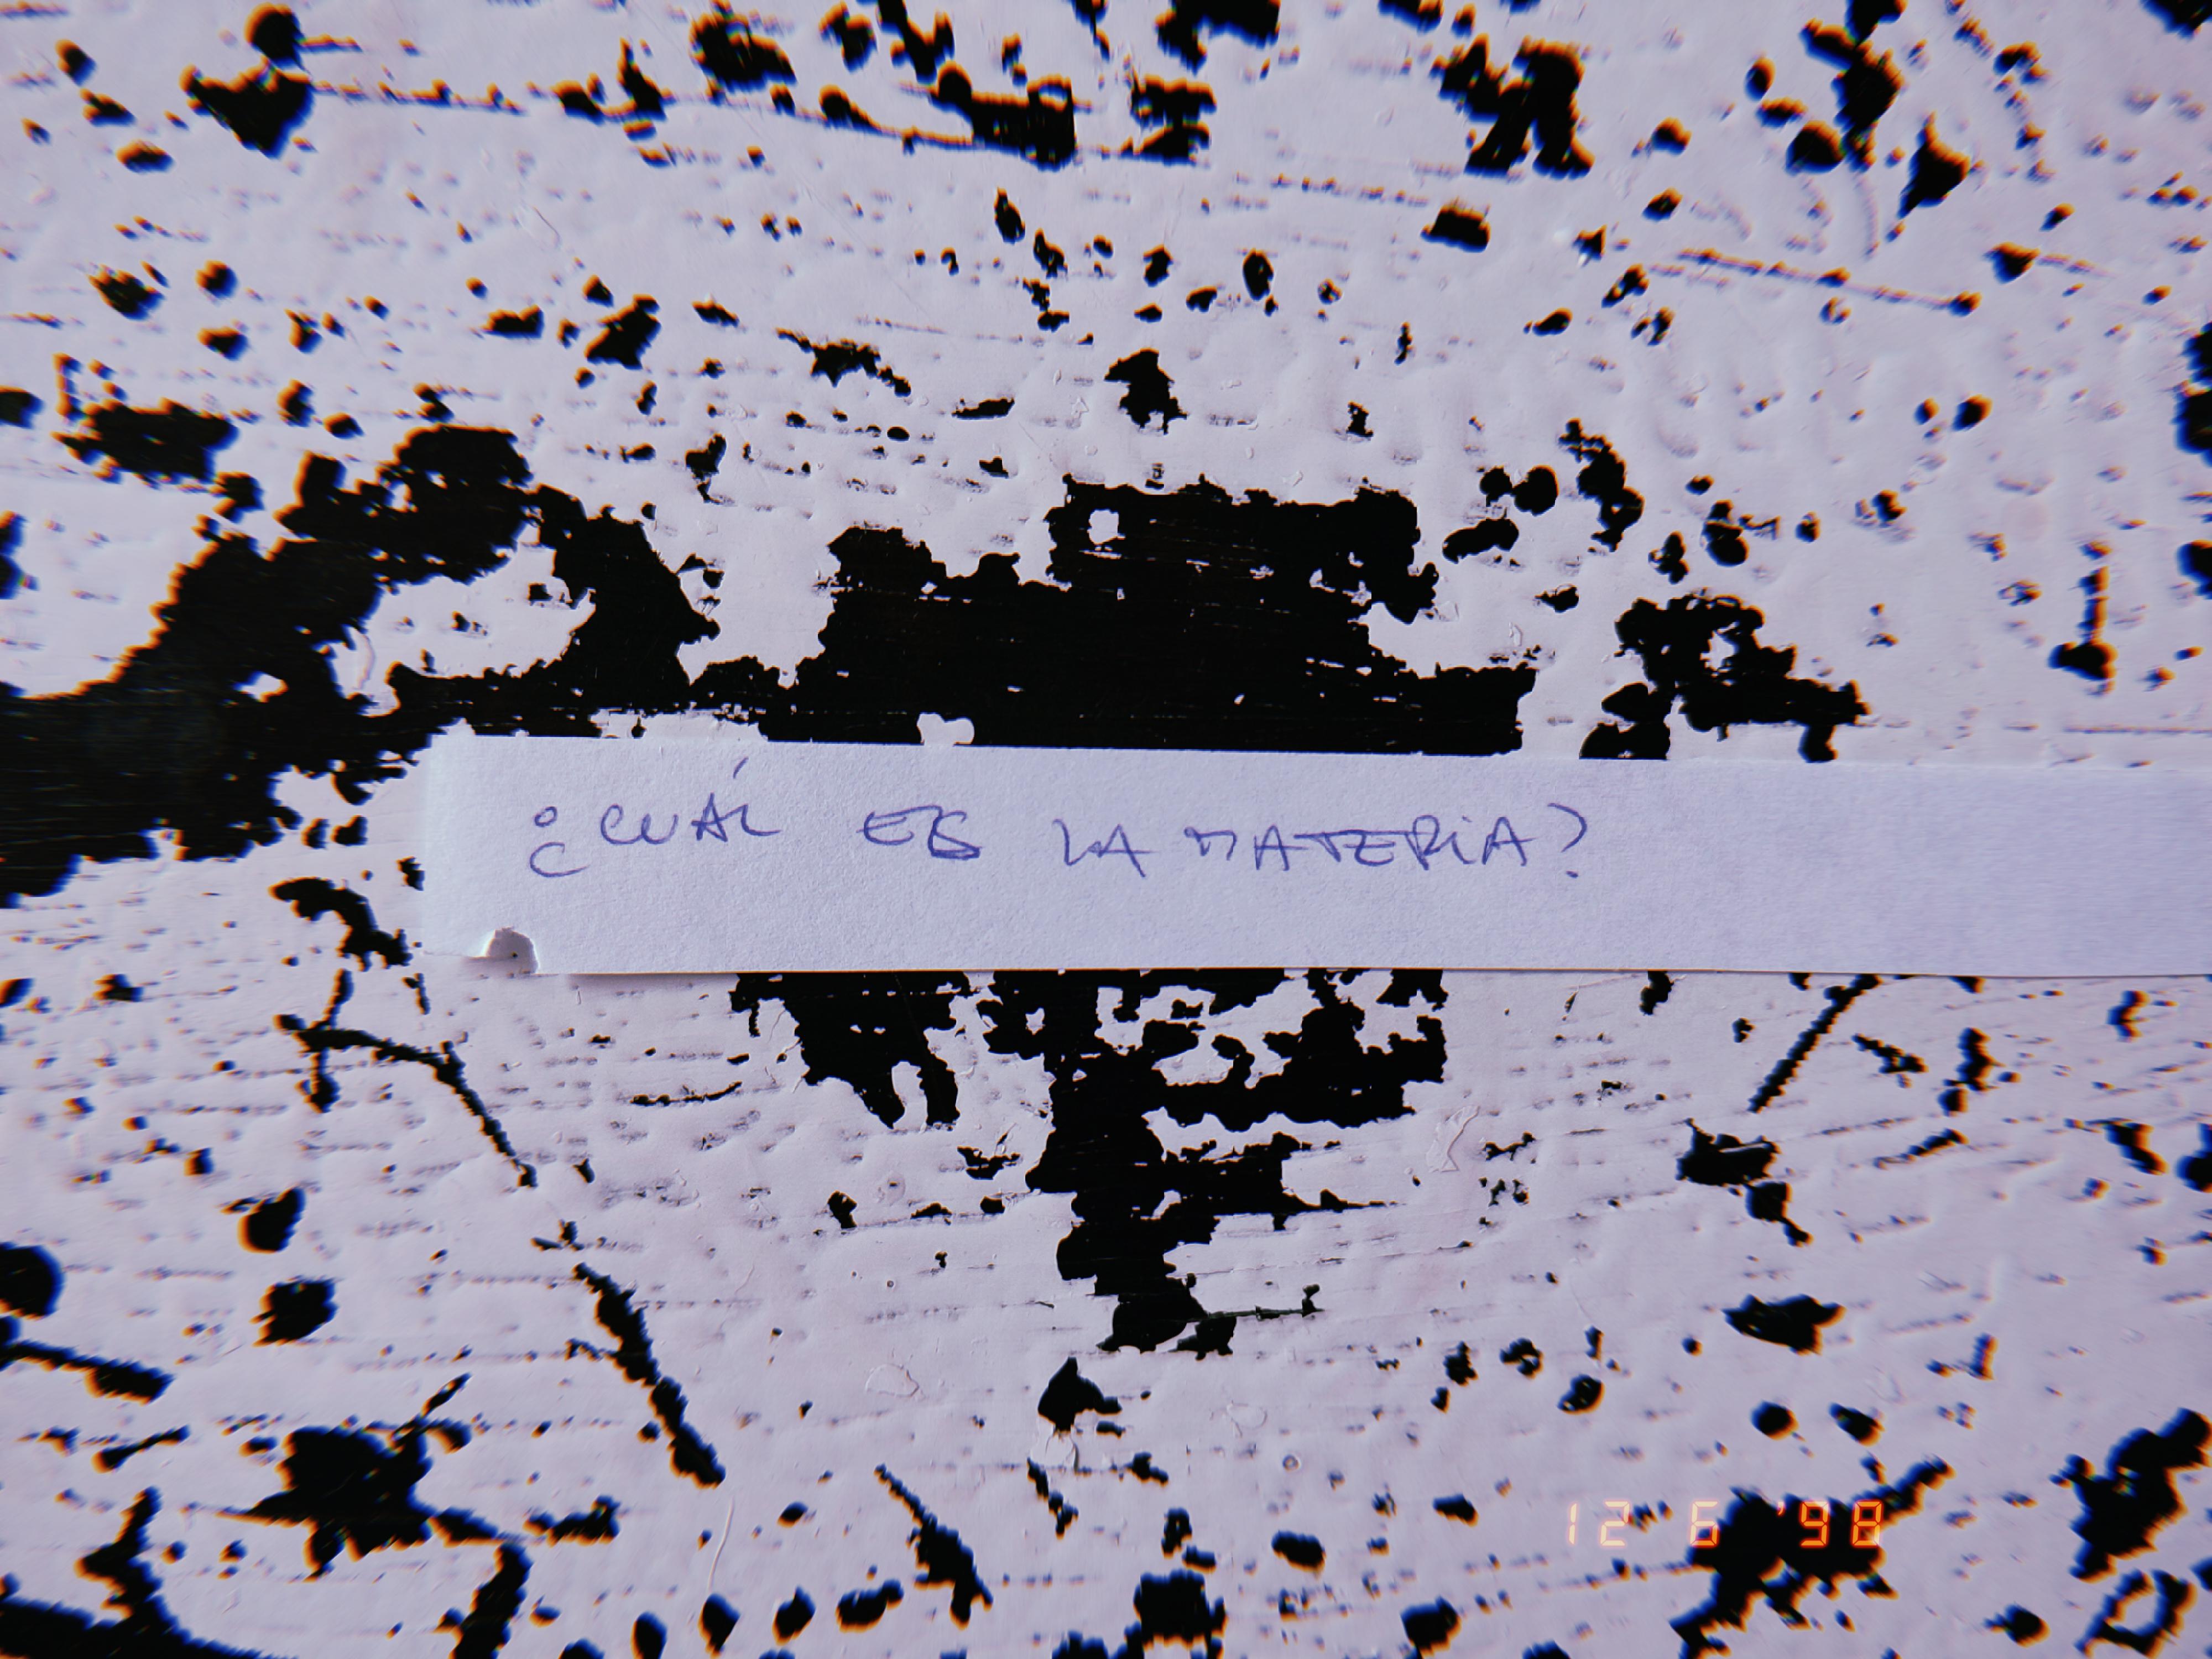 ¿CUÁL ES LA MATERIA?
12 6 '98